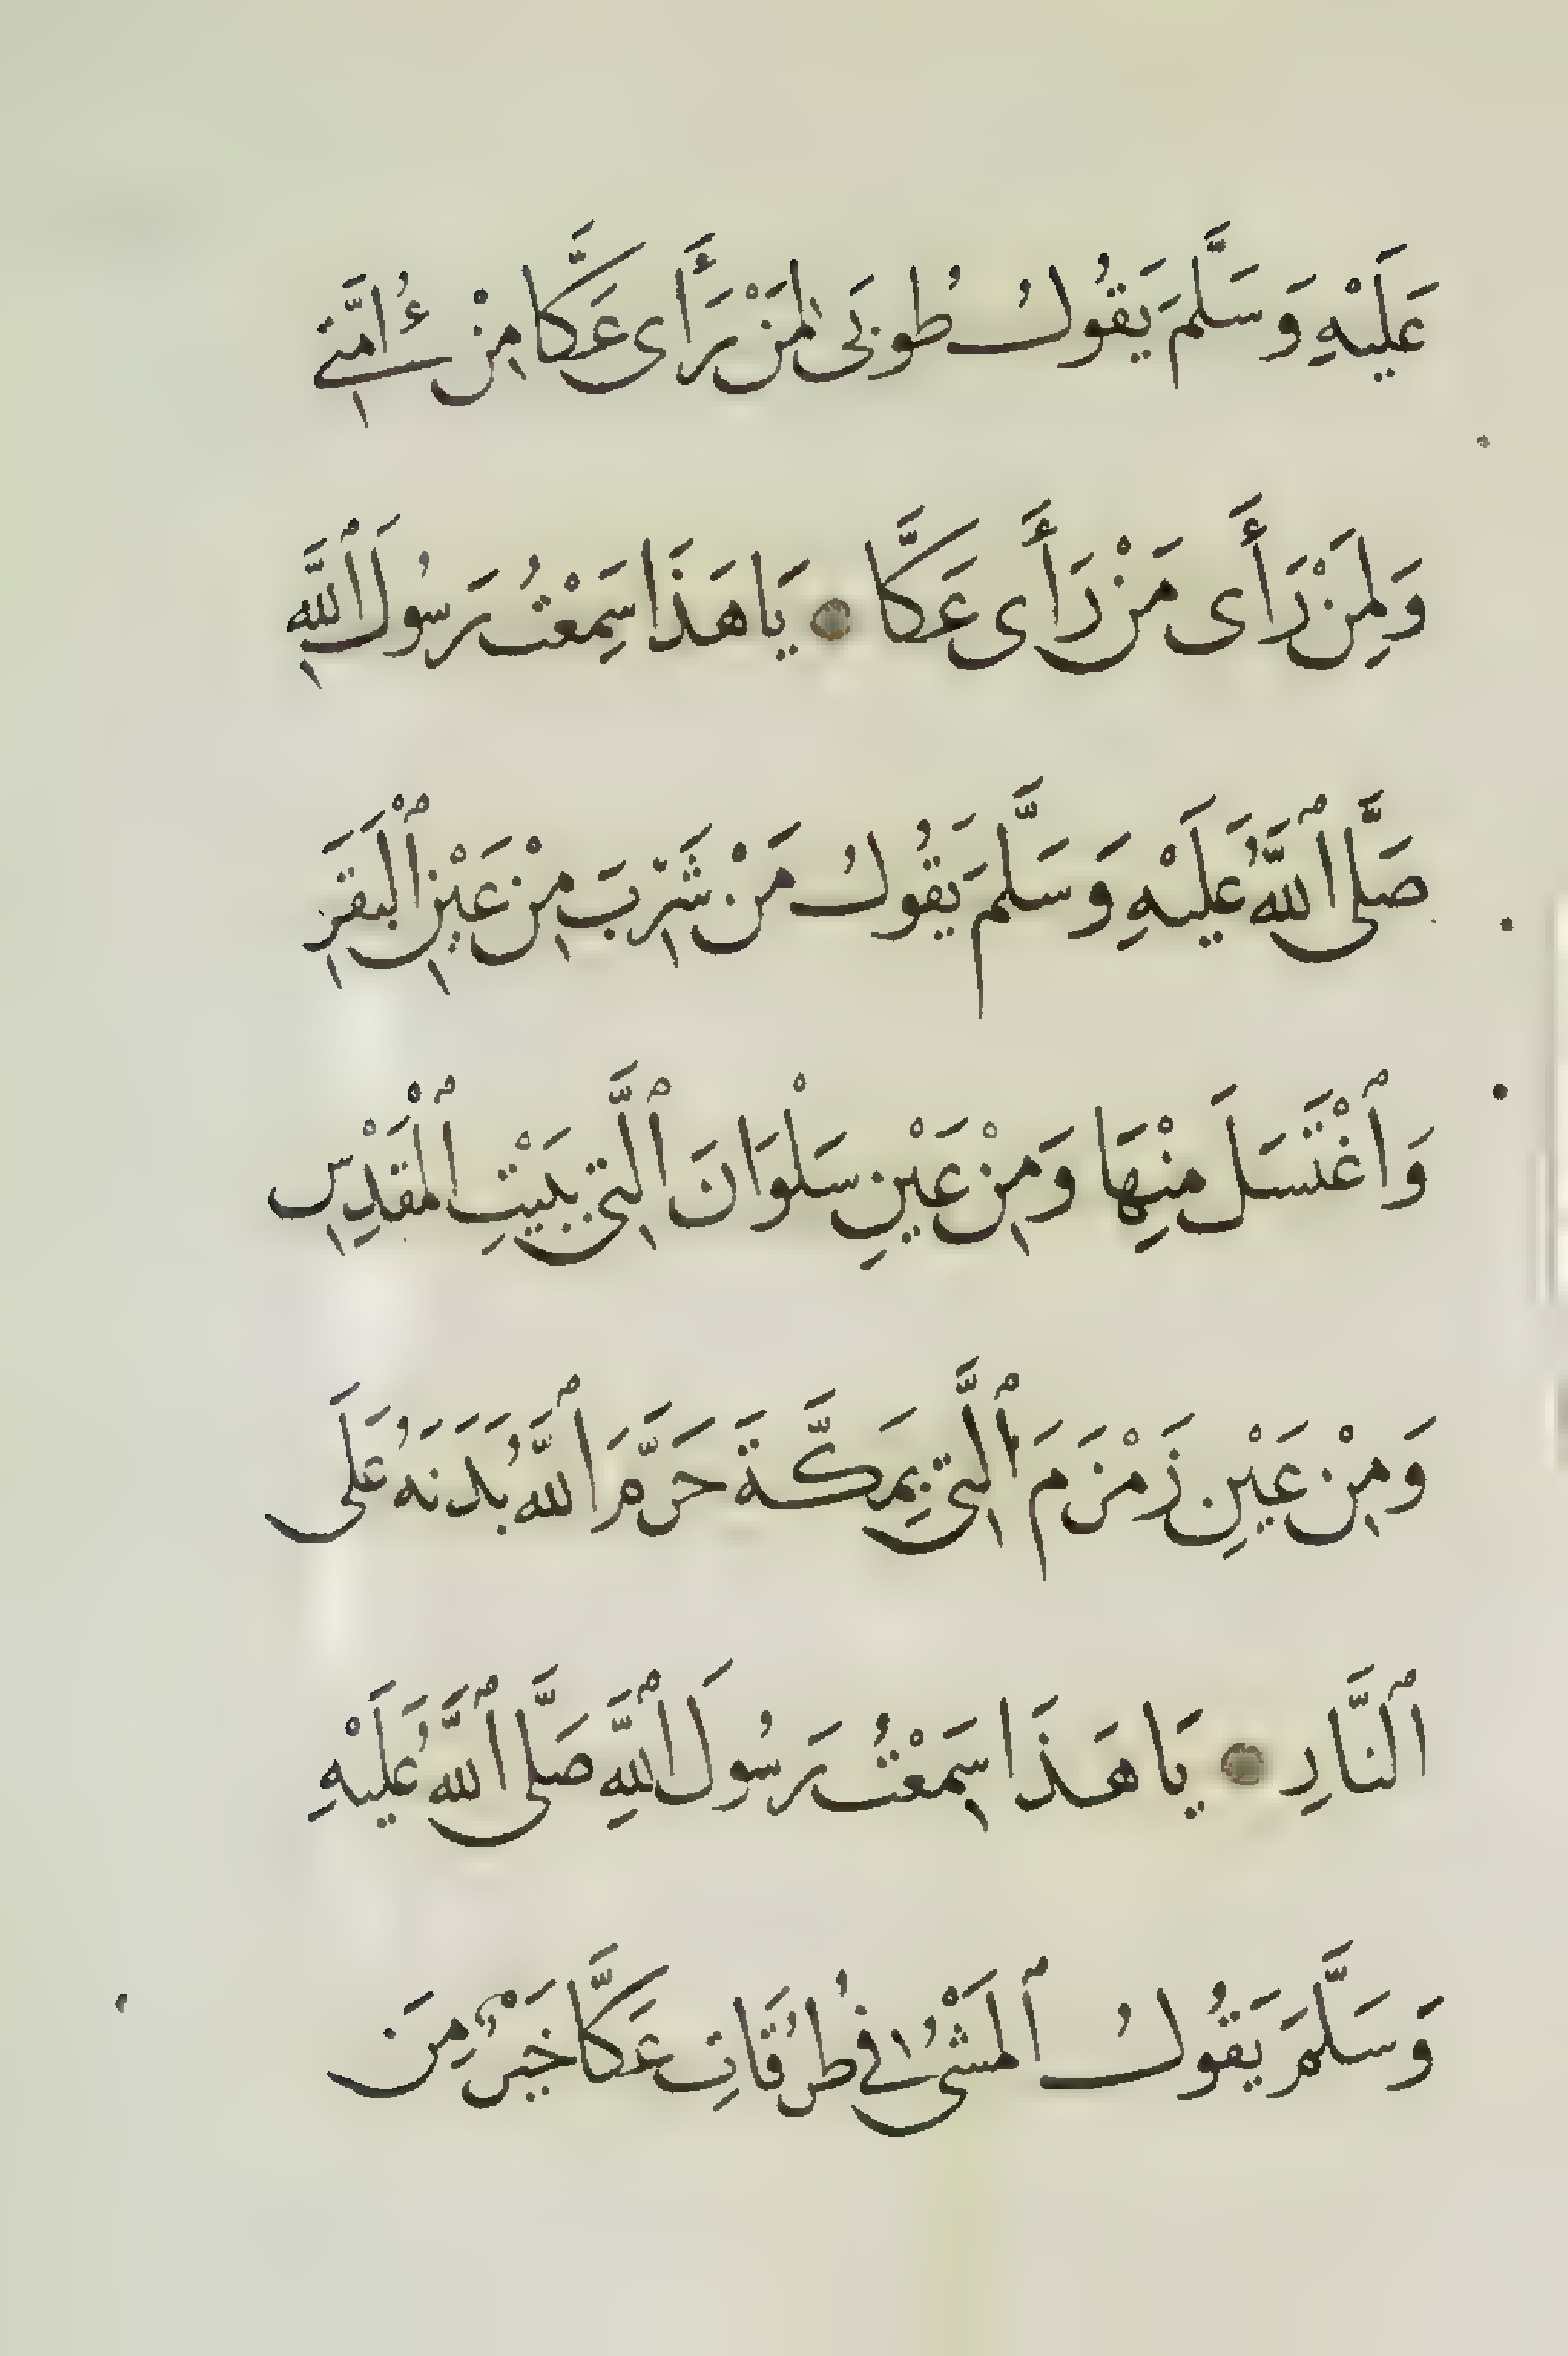 عَلَيْهِ وَسَلَّمَ يَقُولُ طُوبَى لِمَنْ رَأَى عَكَّا مِنْ أُمَّتِي
وَلِمَنْ رَأَى مَنْ رَأَى عَكَّا ● يَا هَذَا سَمِعْتُ رَسُولَ ٱللَّهِ
صَلَّى ٱللَّهُ عَلَيْهِ وَسَلَّمَ يَقُولُ مَنْ شَرِبَ مِنْ عَيْنِ ٱلْبَقَرِ
وَٱغْتَسَلَ مِنْهَا وَمِنْ عَيْنِ سَلْوَانَ ٱلَّتِي بِبَيْتِ ٱلْمَقْدِسِ
وَمِنْ عَيْنِ زَمْزَمَ ٱلَّتِي بِمَكَّةَ حَرَّمَ ٱللَّهُ بَدَنَهُ عَلَى
ٱلنَّارِ ● يَا هَذَا سَمِعْتُ رَسُولَ ٱللَّهِ صَلَّى ٱللَّهُ عَلَيْهِ
وَسَلَّمَ يَقُولُ ٱلْمَشْيُ فِي طُرُقَاتِ عَكَّا خَيْرٌ مِنَ